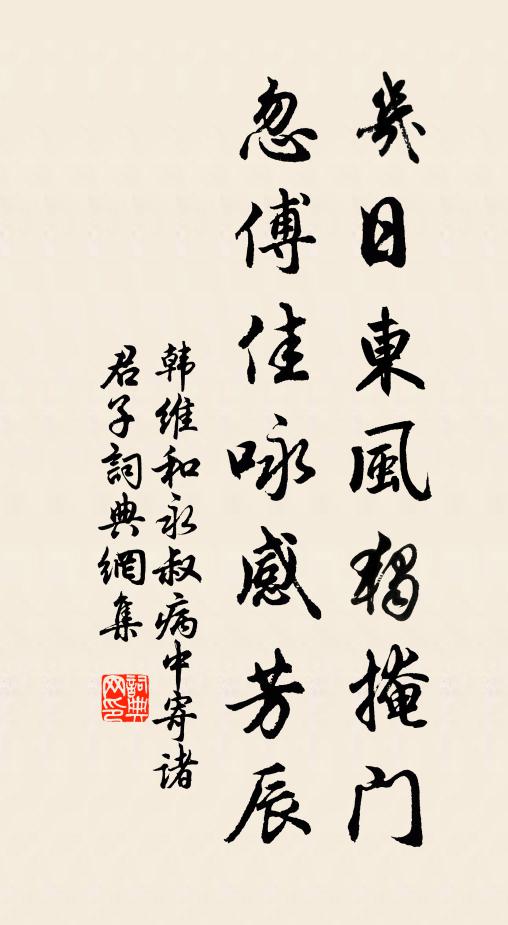 幾日東風獨掩門
忽傳佳咏感芳辰
韩維和永叔病中寄诸
君子詞典網集
詞典
网印